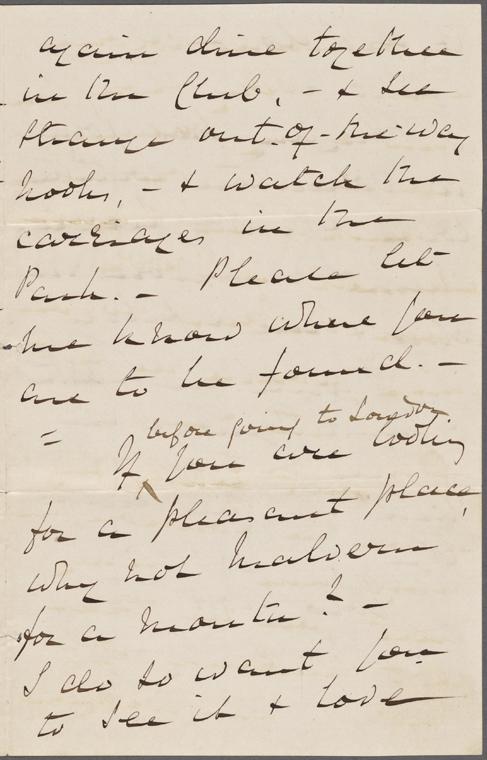 again dine together
in the Club, - & see
strange out-of-the-way
nooks, - & watch the
carriages in the
Park. - Please let
me know where you
are to be found. -
=
before going to London
If you are looking
for a pleasant place,
why not Malvern
for a month? -
I do so want you
to see it & love